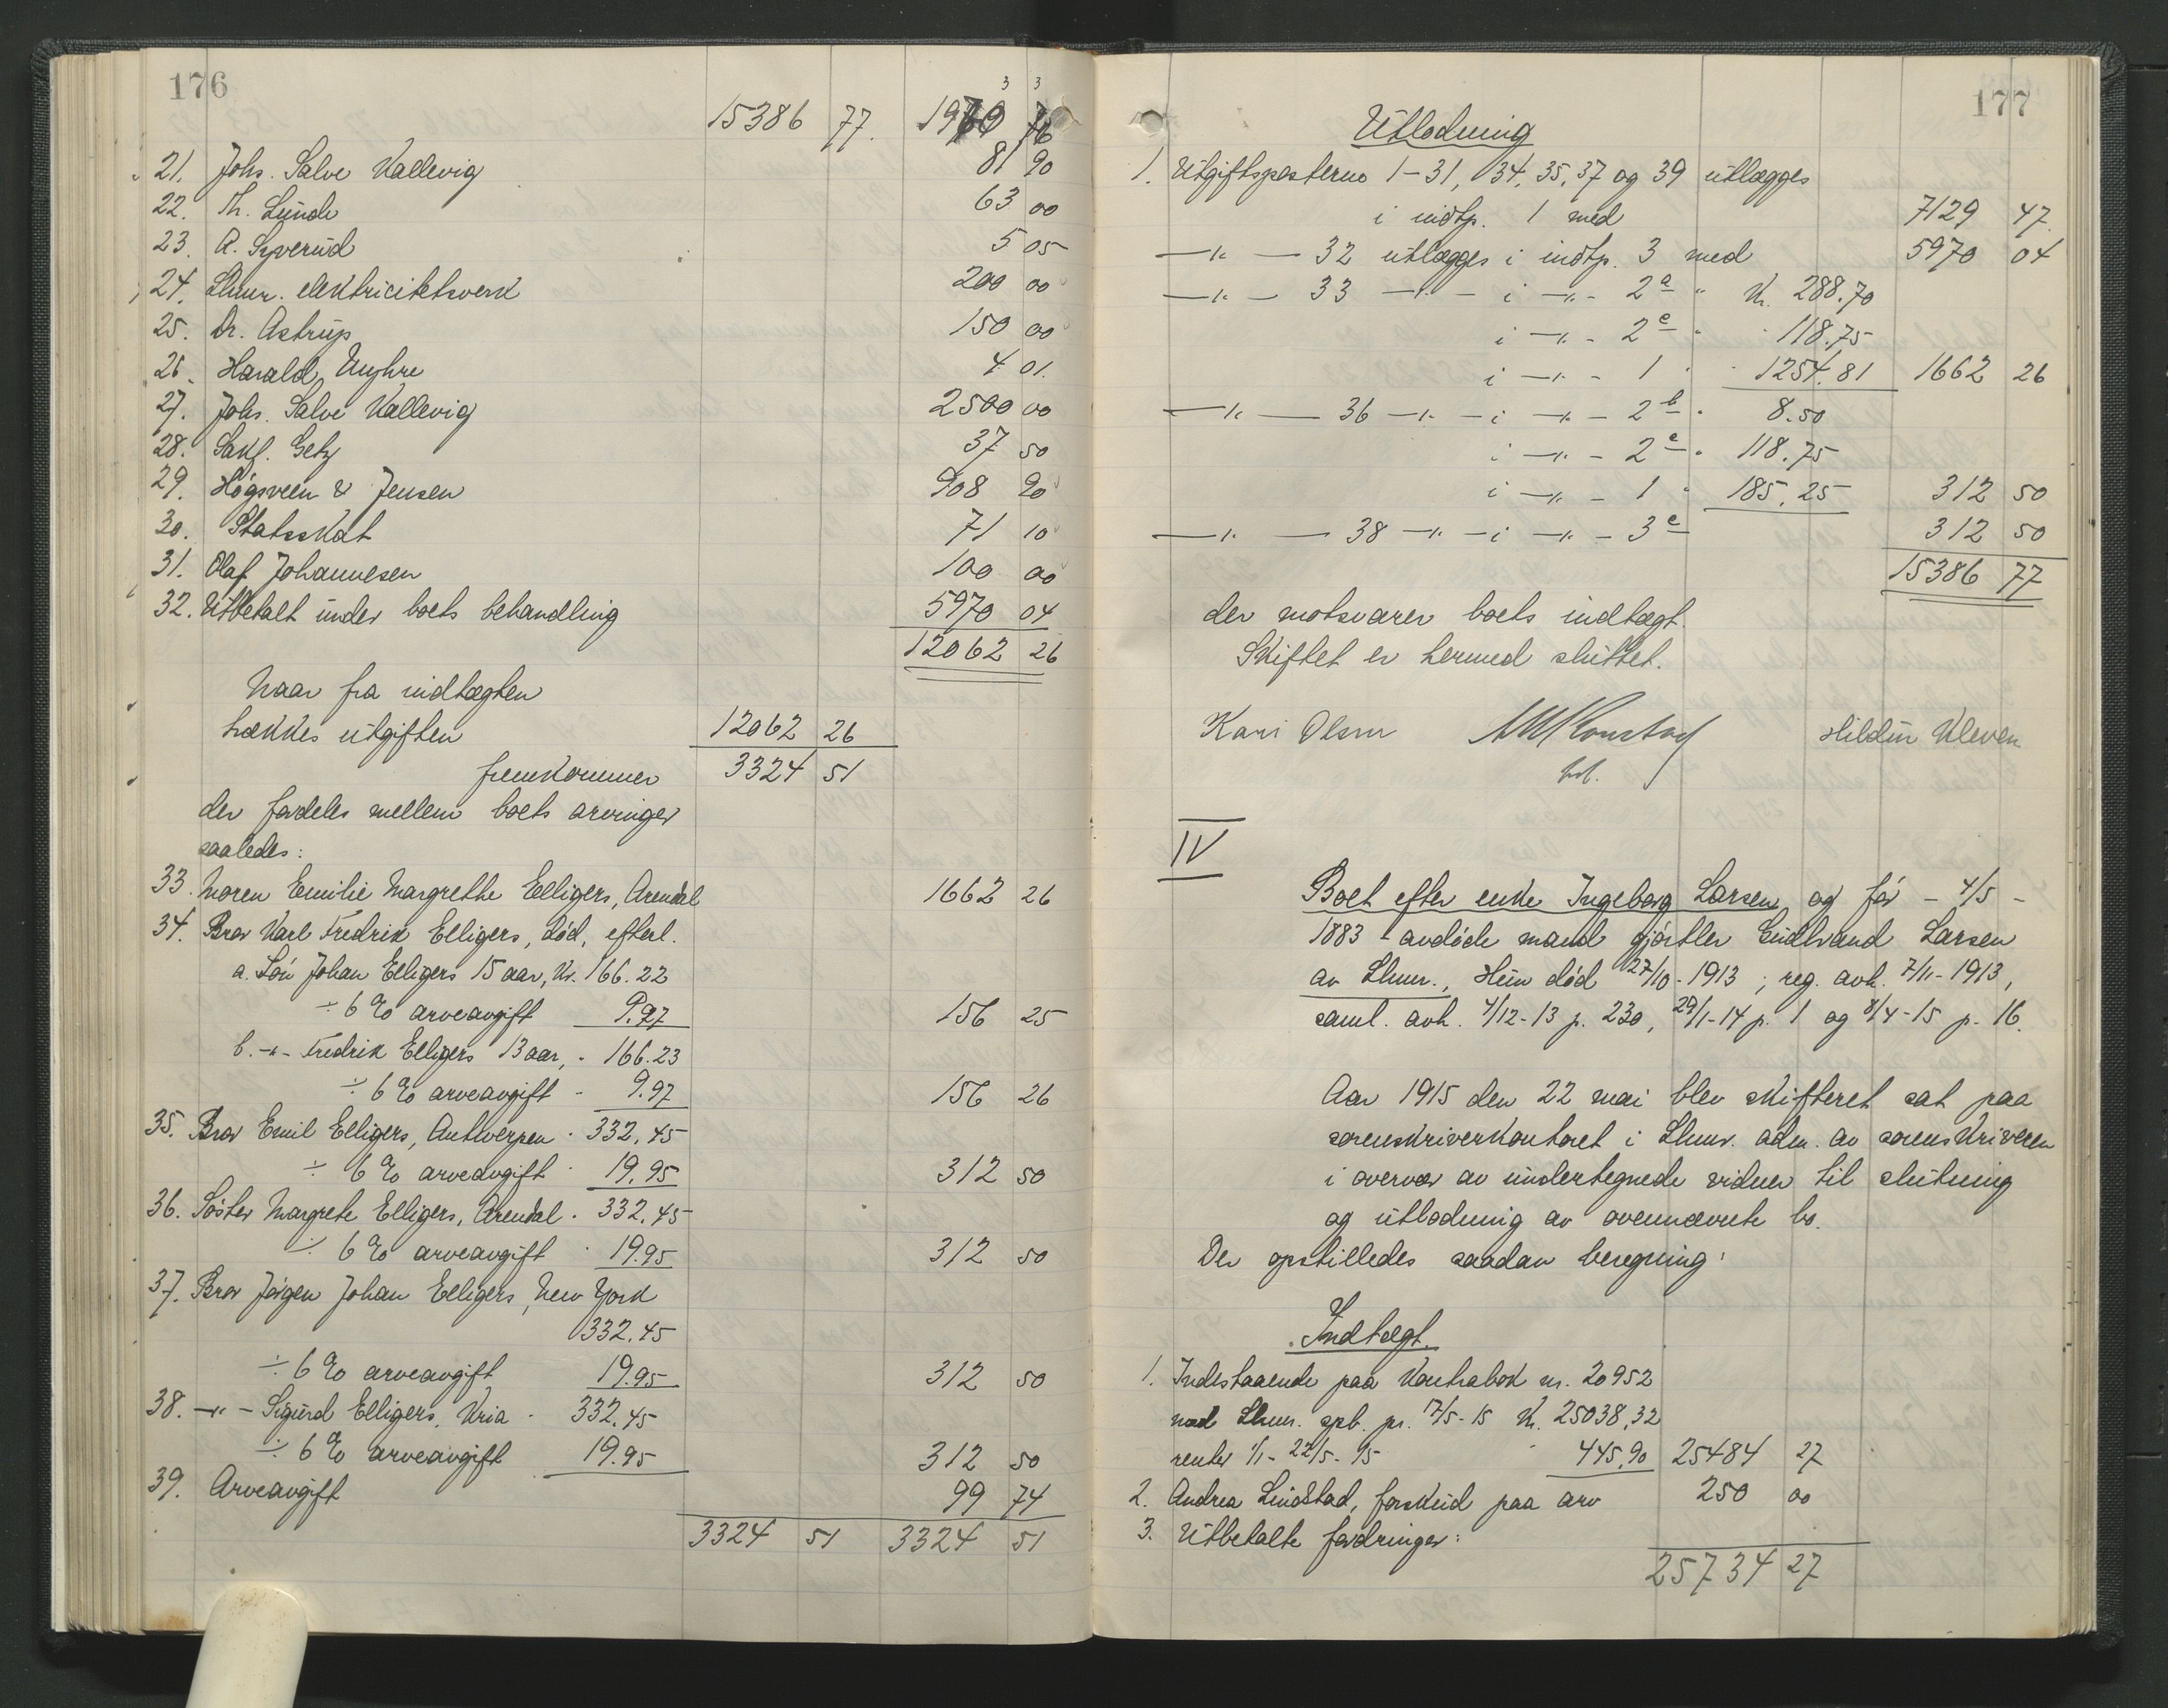 176
3 3
15386 77. 1970 76
21. Johs. Salve Kallevig 81 90
22. Th. Lunde 63 00
23. A. Syverud 5 05
24. Lhmr. elektricitetsverk 200 00
25. Dr. Astrup 150 00
26. Harald Myhre 4 01.
27. Johs. Salve Kallevig 2500 00
28. Sakf. Getz 37 50
29. Høgsveen & Jensen 908 90
30. Statsskat 71 10
31. Olaf Johannesen 100 00
32. Utbetalt under boets behandling 5970 04
12062 26
Naar fra indtægten
trækkes utgiften 12062 26
fremkommer 3324 51
der fordeles mellem boets arvinger
saaledes:
33. Moren Emilie Margrethe Elligers, Arendal 1662 26
34. Bror Karl Fredrik Elligers, død, efterl.
a. Søn Johan Elligers 15 aar, Kr. 166.22
÷ 6 % arveavgift 9.97 156 25
b. -"- Fredrik Elligers 13 aar, - 166.23
÷ 6 % arveavgift - 9.97 156 26
35. Bror Emil Elligers, Antwerpen - 332.45
÷ 6 % arveavgift - 19.95 312 50
36. Søster Margrete Elligers, Arendal - 332.45
÷ 6 % arveavgift - 19.95 312 50
37. Bror Jørgen Johan Elligers, New York
332.45
÷ 6 % arveavgift 19.95 312 50
38. -"- Sigurd Elligers, Kria - 332.45
÷ 6 % arveavgift 19.95 312 50
39. Arveavgift 99 74
3324 51 3324 51
177
Utlodning
1. Utgiftsposterne 1-31, 34, 35, 37 og 39 utlægges
i indtp. 1 med 7129 47
-"- - 32 utlægges i indtp. 3 med 5970 04
-"- - 33 -"- - i -"- - 2a " Kr. 288.70
i -"- - 2e " - 118.75
i -"- - 1 " - 1254.81 1662 26
-"- - 36 -"- - i -"- - 2b " 8.50
i -"- - 2e " 118.75
i -"- - 1 " 185.25 312 50
-"- - 38 -"- - i -"- - 3e 312 50
15386 77
der motsvarer boets indtægt.
Skiftet er hermed sluttet.
Kari Olsen Hildur Kleven
IV
Boet efter enke Ingeborg Larsen og før - 4/5 -
1883 - avdøde mand gjørtler Gudbrand Larsen
av Lhmr., Hun død 27/10-1913; reg. avh. 7/11-1913,
saml. avh. 4/12-13 p. 230, 29/1-14 p. 1 og 8/4-15 p. 16.
Aar 1915 den 22 mai blev skifteret sat paa
sorenskriverkontoret i Lhmr. adm. av sorenskriveren
i overvær av undertegnede vidner til slutning
og utlodning av ovennævnte bo.
Der opstilledes saadan beregning:
Indtægt.
1. Indestaaende paa Kontrabok nr. 20952
med Lhmr. spb. pr. 17/5-15 Kr. 25038,32
renter 1/1-22/5-15 - 445,90 25484 27
2. Andrea Lindstad, forskud paa arv 250 00
3. Utbetalte fordringer:
25734 27